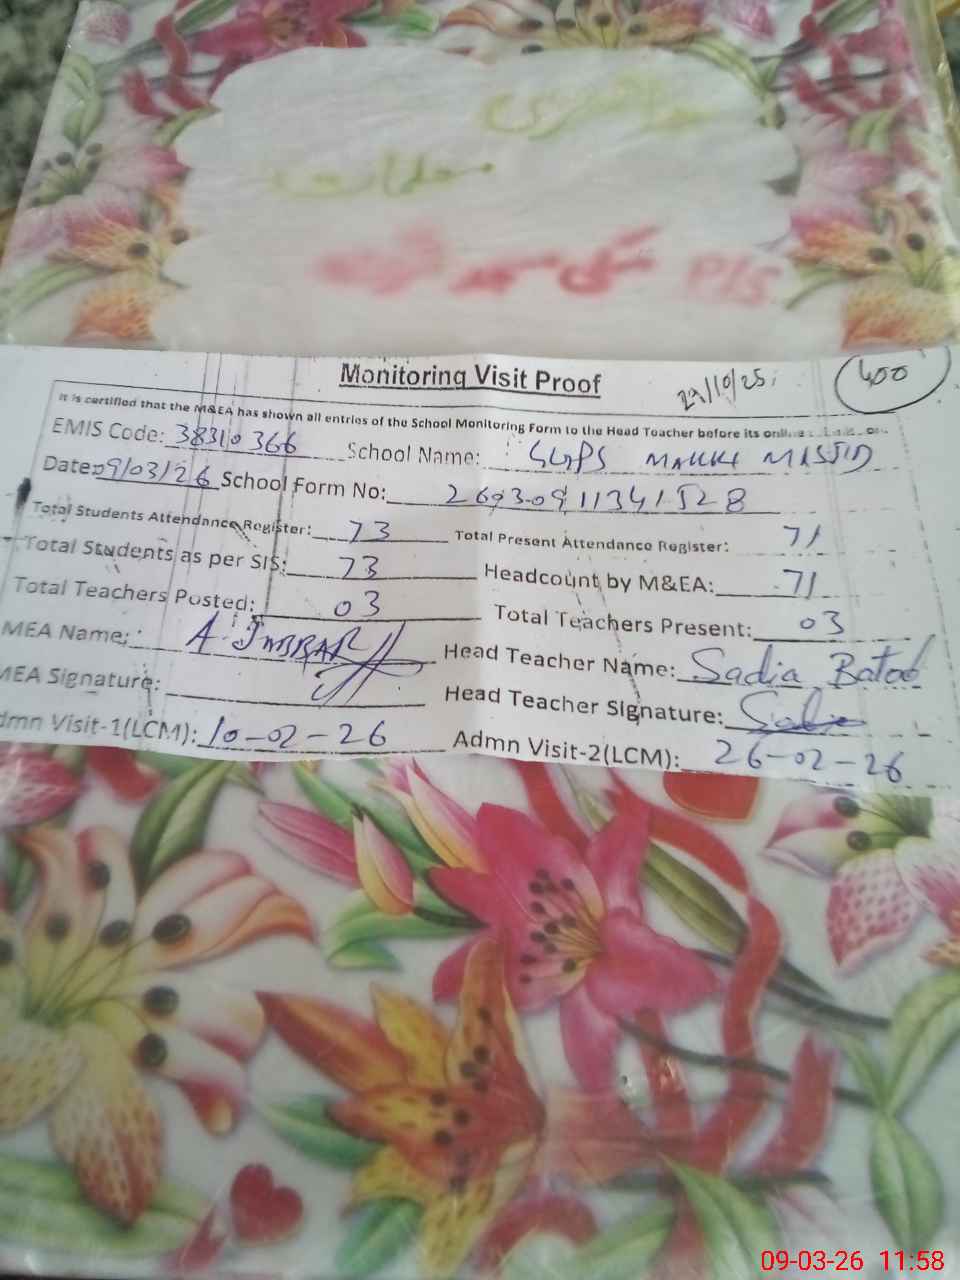 حاضری
معلمات
P/S مکی مسجد
Monitoring Visit Proof
29/10/25
400
It is certified that the M&EA has shown all entries of the School Monitoring Form to the Head Teacher before its online
EMIS Code: 38310366 School Name: GGPS MAKKI MASJID
Date: 09/03/26 School Form No: 26930911341528
Total Students Attendance Register: 73 Total Present Attendance Register: 71
Total Students as per SIS: 73 Headcount by M&EA: 71
Total Teachers Posted: 03 Total Teachers Present: 03
MEA Name: A. JABBAR Head Teacher Name: Sadia Batool
MEA Signature: Head Teacher Signature: Sadia
dmn Visit-1(LCM): 10-02-26 Admn Visit-2(LCM): 26-02-26
09-03-26 11:58